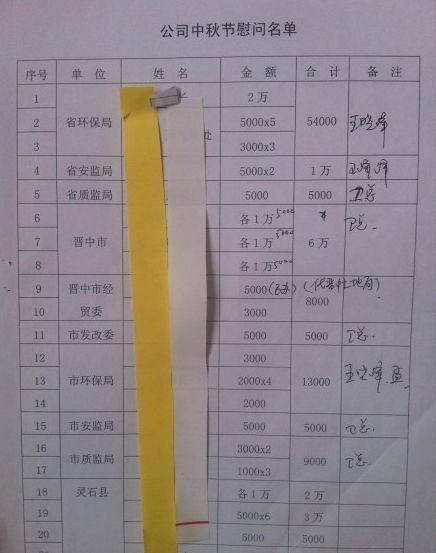 公司中秋节慰问名单
序号 单位 姓名 金额 合计 备注
1 2万
2 省环保局 处 5000x5 54000
3 3000x3
4 省安监局 5000x2 1万
5 省质监局 5000 5000 卫总
6 各1万 5000 卫总
7 晋中市 各1万 5000 6万
8 各1万 5000
9 晋中市经 5000
10 贸委 3000 8000
11 市发改委 5000 5000 卫总
12 3000
13 市环保局 2000x4 13000
14 2000
15 市安监局 5000 5000 卫总
16 3000x2
17 市质监局 1000x3 9000 卫总
18 灵石县 各1万 2万
19 5000x6 3万
20 5000 5000